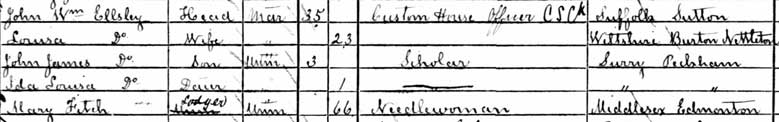 John Wm Ellsley Head Mar 35 Custom House Officer CSCk Suffolk Sutton
Lousa Do Wife " 23 Wiltshire Burton Nettleton
John James Do Son Unm 3 Scholar Surry Peckham
Ida Lousa Do Daur 1 " "
Mary Fitch Lodger Unm 66 Needlewoman Middlesex Edmonton